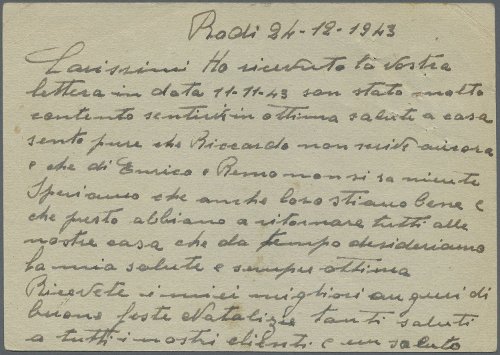 Rodi 24-12-1943
Carissimi Ho ricevuto la vostra
lettera in data 11-11-43 son stato molto
contento sentirvi in ottima salute a casa
sento pure che Riccardo non scrive ancora
e che di Enrico e Remo non si sa niente
Speriamo che anche loro stiano bene e
che presto abbiano a ritornare tutti alle
nostre casa che da tempo desideriamo
la mia salute e sempre ottima
Ricevete i miei migliori auguri di
buone feste Natalizie tanti saluti
a tutti i nostri clienti e un saluto